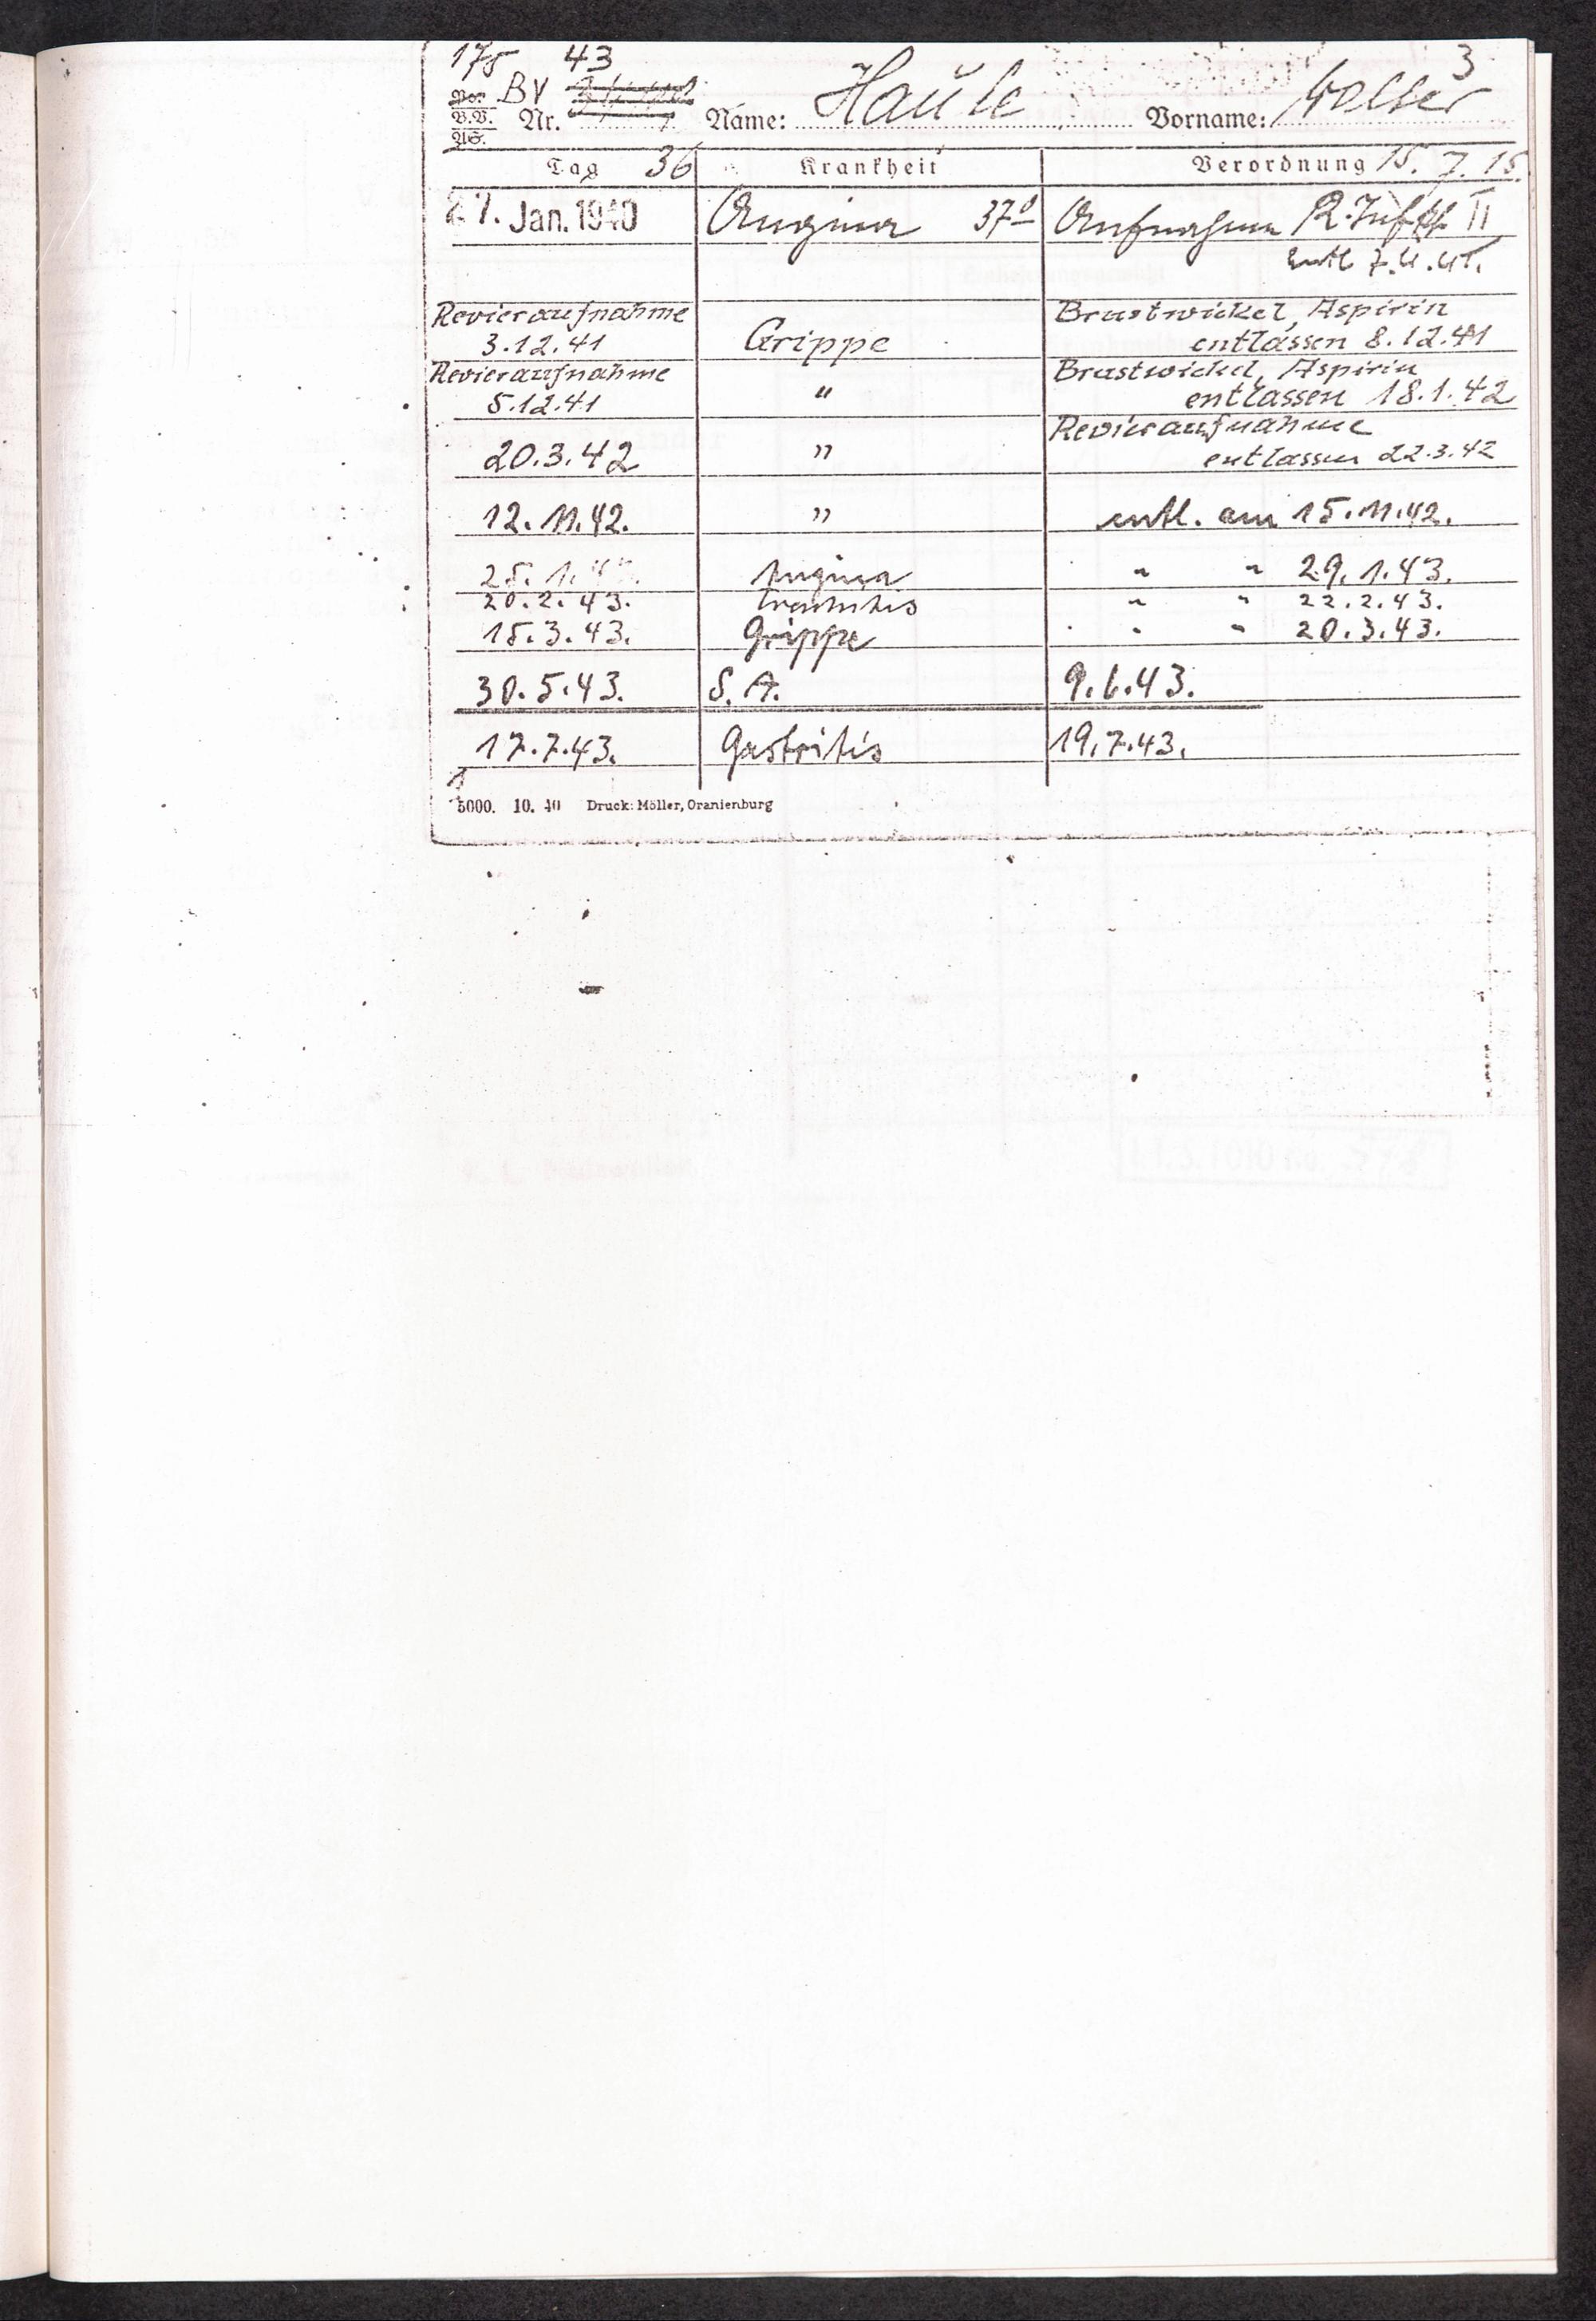 175 43 3
Vor. BV
V.V. Nr. Name: Haule Vorname: Walter
AS.
Tag 36 Krankheit Verordnung 15. 7. 15.
27. Jan. 1940 Angina 37 Aufnahme R. II
entl 7.
Revieraufnahme Brustwickel, Aspirin
3.12.41 Grippe entlassen 8.12.41
Revieraufnahme Brustwickel, Aspirin
5.12.41 " entlassen 18.1.42
Revieraufnahme
20.3.42 " entlassen 22.3.42
12.11.42. " entl. am 15.11.42.
25.1.43. Angina " " 29.1.43.
20.2.43. " " 22.2.43.
15.3.43. Grippe " " 20.3.43.
30.5.43. S. A. 9.6.43.
17.7.43. Gastritis 19.7.43.
5000. 10. 40 Druck: Möller, Oranienburg